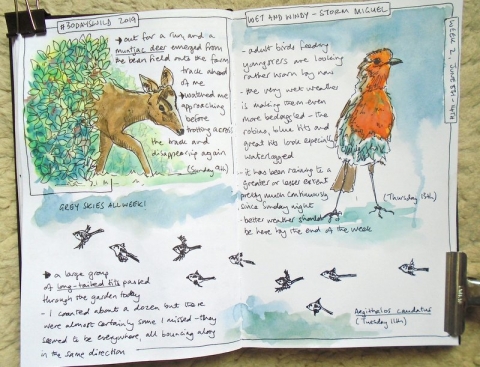 #30DAYSWILD 2019
→ out for a run, and a
muntjac deer emerged from
the bean field onto the farm
track ahead
of me
→ watched me
approaching
before
trotting across
the track and
disappearing again
(Sunday 9th)
GREY SKIES ALL WEEK!
→ a large group
of long-tailed tits passed
through the garden today
- I counted about a dozen but there
were almost certainly some I missed - they
seemed to be everywhere, all bouncing along
in the same direction
WET AND WINDY - STORM MIGUEL
WEEK 2, JUNE 8TH - 14TH
- adult birds feeding
youngsters are looking
rather worn by now
- the very wet weather
is making them even
more bedraggled - the
robins, blue tits and
great tits look especially
waterlogged
- it has been raining to a
greater or lesser extent
pretty much continuously
since Sunday night
- better weather should
be here by the end of the week
(Thursday 13th)
Aegithalos caudatus
(Tuesday 11th)